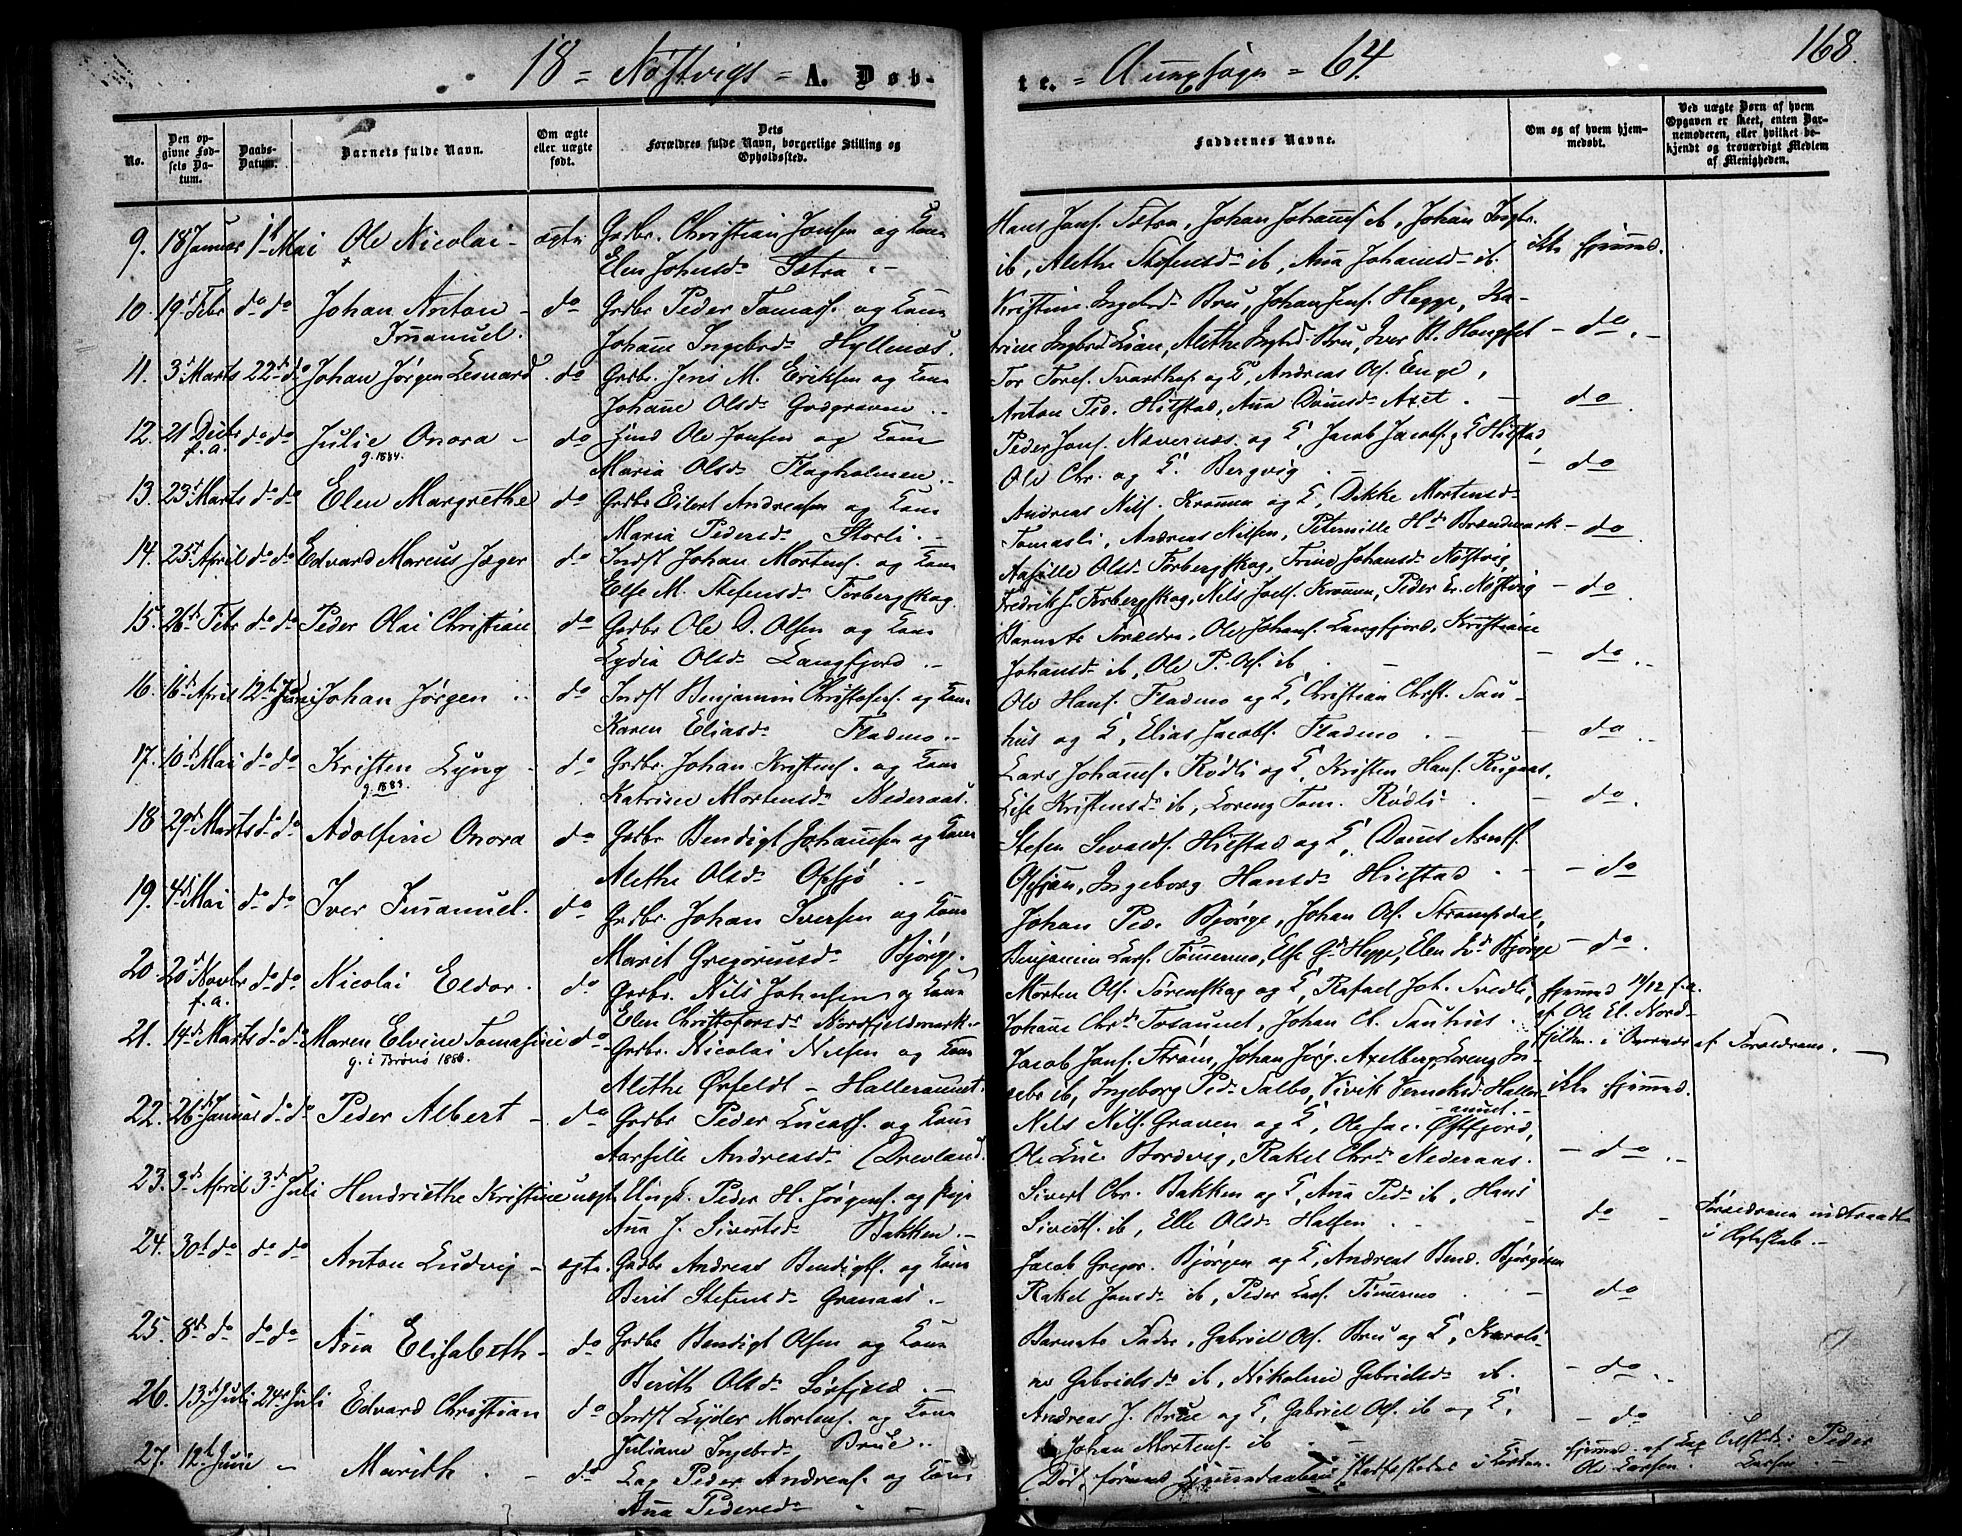 18 = Nøstvigs = A. Døb-
te. = Aunesogn = 64.
168.
No.
Den op-
givne Fød-
sels Da-
tum.
Daabs-
Datum.
Barnets fulde Navn.
Om ægte
eller uægte
født.
Dets
Forældres fulde Navn, borgerlige Stilling og
Opholdssted.
Faddernes Navne.
Om og af hvem hjem-
medøbt.
Ved uægte Børn af hvem
Opgaven er skeet, enten Bar-
nemoderen, eller hvilket be-
kjendt og troværdigt Medlem
af Menigheden.
9. 18 Januar 1ste Mai Ole Nicolai ægte Grdbr. Christian Jonsen og Kone
Elen Johnsdr Sætra
Hans Jonss. Sætra, Johan Johanss. ib, Johan Ingbr.
ib, Alethe Stefensdr ib, Ana Johansdr ib. ikke hjemmed.
10. 19d Febr do do Johan Anton do Grdbr Peder Tomass. og Kone
Imanuel. Johane Ingebrdr Hyllenæs.
Kristine Ingebrdr Bru, Johan Jens. Hegge, Ka-
trine Ingbrdr Lian, Alethe Ingbrd. Bru, Iver H. - do -
11. 3d Marts 22d do Johan Jørgen Lenard do Grdbr. Jens M. Eriksen og Kone
Johane Olsdr Godgraven
Tor Tores. Svarthaf og K, Andreas Ols. Enge,
Anton Ped. Hilstad, Ana Axet. - do
12. 21 Decbr do do Julie Onora do Ole Jonsen og Kone
f.a. g. 1884. Maria Olsdr Flagholmen
Peder Jons. Nævernæs og K, Jacob Jacobs. og K Hilstad,
Ole Chr. og K. Bergvig - do
13. 23d Marts do do Elen Margrethe do Grdbr Eilert Andreasen og Kone
Maria Pedersdr Storli.
Andreas Nils. Kroman og K, Dikke Mortensdr
Tomasli, Andreas Nilsen, Peternille Hdr Brændmark - do
14. 25d April do do Edvard Marcus Jæger do Indst Johan Mortens. og Kone
Else M. Stefensdr Forbergskog.
Olsdr Forbergskog, Trine Johansdr Nøstvig,
Fredrik J. Forbergskog, Nils Joels. Kroman, Peder Er. Nøstvig - do
15. 26d Febr do do Peder Olai Christian do Grdbr Ole D. Olsen og Kone
Lydia Olsdr Langfjord
Barnets Forældre, Ole Johans. Langfjord, Kristiane
Johansdr ib, Ole P. Ols. ib - do
16. 16d April 12te Juni Johan Jørgen do Indst Benjamin Christofers. og Kone
Karen Eliasdr Fladmo
Ole Hans. Fladmo og K, Christian Christ. Sau-
hus og K, Elias Jacobs. Fladmo - do
17. 10d Mai do do Kristen Lyng do Grdbr. Johan Kristens. og Kone
g. 1889. Katrine Mortensdr Nederaas.
Lars Johans. Rødli og K, Kristen Hans. Rugaas,
Lise Kristensdr ib, Loreng Tom. Rødli - do
18 29d Marts do do Adolfine Onora do Grdbr Bendigt Johansen og Kone
Alethe Olsdr Opsjø
Stefen Sivalds. Hilstad og K, Daniel Arnts.
Opsjøn, Ingeborg Hansdr Hilstad - do
19. 4d Mai do do Iver Imanuel. do Grdbr. Johan Iversen og Kone
Marit Gregoriusdr Bjørge.
Johan Ped. Bjørge, Johan Ols. Strømsdal,
Benjamin Lars. Tømermo, Else Gdr Hegge, Elen Ldr Bjørge - do
20. 20d Novbr do do Nicolai Eldor. do Grdbr. Nils Johnsen og Kone
f.a. Elen Christofersdr Nordfjeldmark.
Morten Ols. Sørenskog og K, Rafael Joh. Tredli,
Johane Chrdr Tosaunet, Johan Cl. Sauhus. hjemmed 4/12 f.a.
af Ole El. Nord-
fjelden i Overvær af Forældrene.
21. 14d Marts do do Maren Elvine Tomasine do Grdbr. Nicolai Nilsen og Kone
g. i Brønø 1880. Alethe Ørfeldt - Halleraunet.
Jacob Jons. Strøm, Johan Jørg. Axelberg, Loreng In-
gebr ib, Ingeborg Peddr Salbo, Halle-
raunet. ikke hjemmed.
22. 26d Januar do do Peder Albert do Grdbr Peder Lucass. og Kone
Andreasdr Drevland.
Nils Nils. Graven og K, Ole Jac. Østfjord,
Ole Luc. Bordvig, Rakel Chrdr Nederaas. - do -
23. 3d April 3d Juli Hendriethe Kristine uægt. Ungk. Peder H. Jørgens. og Pige
Ana J. Sivertsdr Bakken.
Sivert Chr. Bakken og K, Ana Peddr ib, Hans
Siverts. ib, Elle Olsdr Halsen do - Forældrene indtraadt
i Ægteskab.
24. 30t do do do Anton Ludvig ægte. Grdbr Andreas Bendigts. og Kone
Berit Stefensdr Granaas
Jacob Gregor. Bjørgen og K, Andreas Bend. Bjørgøen
Rakel Jonsdr ib, Peder Lars. Tømermo do
25. 8de do do do Ana Elisabeth do Grdbr Bendigt Olsen og Kone
Berith Olsdr Sørfjeld
Barnets Fader, Gabriel Ols. Bru og K, Karoli-
ne Gabrielsdr ib, Nikoline Gabrielsdr ib. - do
26. 13d Juli 24de Juli Edvard Christian do Indst Lyder Mortens. og Kone
Juliane Ingebrdr Brue
Andreas J. Brue og K, Gabriel Ols. ib og K,
Johan Mortens. ib - do
27. 12te Juni - Marith do Lap Peder Andreas. og Kone
Ana Pedersdr
Død, førend Hjemmedaaben stadfæstedes i Kirken. hjemmed. af Lap
Ole Larsen. Peder
Larsen